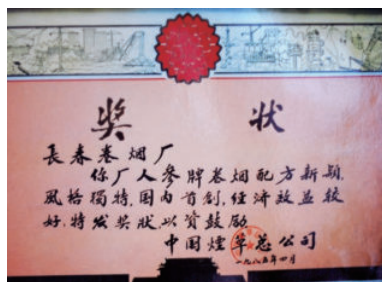 奖状
長春卷烟厂
你厂人参牌卷烟配方新颖,
風格獨特,国内首創,经济效益较
好,特发奖狀,以资鼓励
中国煙草总公司
一九八五年四月